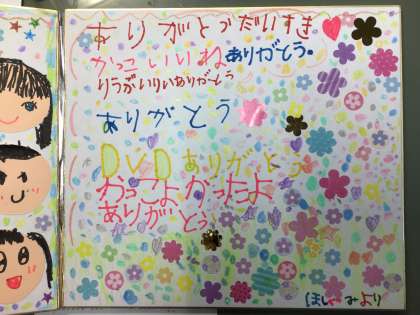 ありがとうだいすき
かっこいいね ありがとう。
ありがとう
ありがとう
DVDありがとう
かっこよかったよ
ありがとう
より